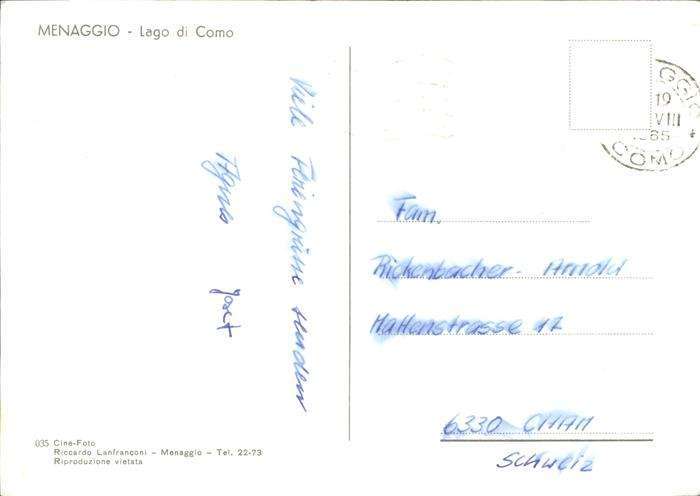 MENAGGIO - Lago di Como
Viele Feriengrüsse senden
Agnes
Josef
GGIO
19
VIII
1965
COMO *
Fam.
Rickenbacher - Arnold
Mattenstrasse 17
6330 CHAM
Schweiz
035 Cine-Foto
Riccardo Lanfranconi - Menaggio - Tel. 22-73
Riproduzione vietata